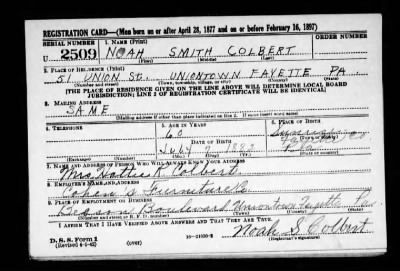 REGISTRATION CARD—(Men born on or after April 28, 1877 and on or before February 16, 1897)
SERIAL NUMBER 1. NAME (Print) ORDER NUMBER
U 2509 NOAH SMITH COLBERT
(First) (Middle) (Last)
2. PLACE OF RESIDENCE (Print)
51 UNION ST. UNIONTOWN FAYETTE PA.
(Number and street) (Town, township, village, or city) (County) (State)
[THE PLACE OF RESIDENCE GIVEN ON THE LINE ABOVE WILL DETERMINE LOCAL BOARD
JURISDICTION; LINE 2 OF REGISTRATION CERTIFICATE WILL BE IDENTICAL]
3. MAILING ADDRESS
SAME
[Mailing address if other than place indicated on line 2. If same insert word same]
4. TELEPHONE 5. AGE IN YEARS 6. PLACE OF BIRTH
60
DATE OF BIRTH
July 7 1882
(Exchange) (Number) (Mo.) (Day) (Yr.) (State or country)
7. NAME AND ADDRESS OF PERSON WHO WILL ALWAYS KNOW YOUR ADDRESS
Mrs Hattie K Colbert
8. EMPLOYER'S NAME AND ADDRESS
Cohen's Furniture Co
9. PLACE OF EMPLOYMENT OR BUSINESS
Boulevard Uniontown Fayette Pa
(Number and street or R. F. D. number) (Town) (County) (State)
I AFFIRM THAT I HAVE VERIFIED ABOVE ANSWERS AND THAT THEY ARE TRUE.
Noah S Colbert
D. S. S. Form 1
(Revised 4-1-42) (over) (Registrant's signature)